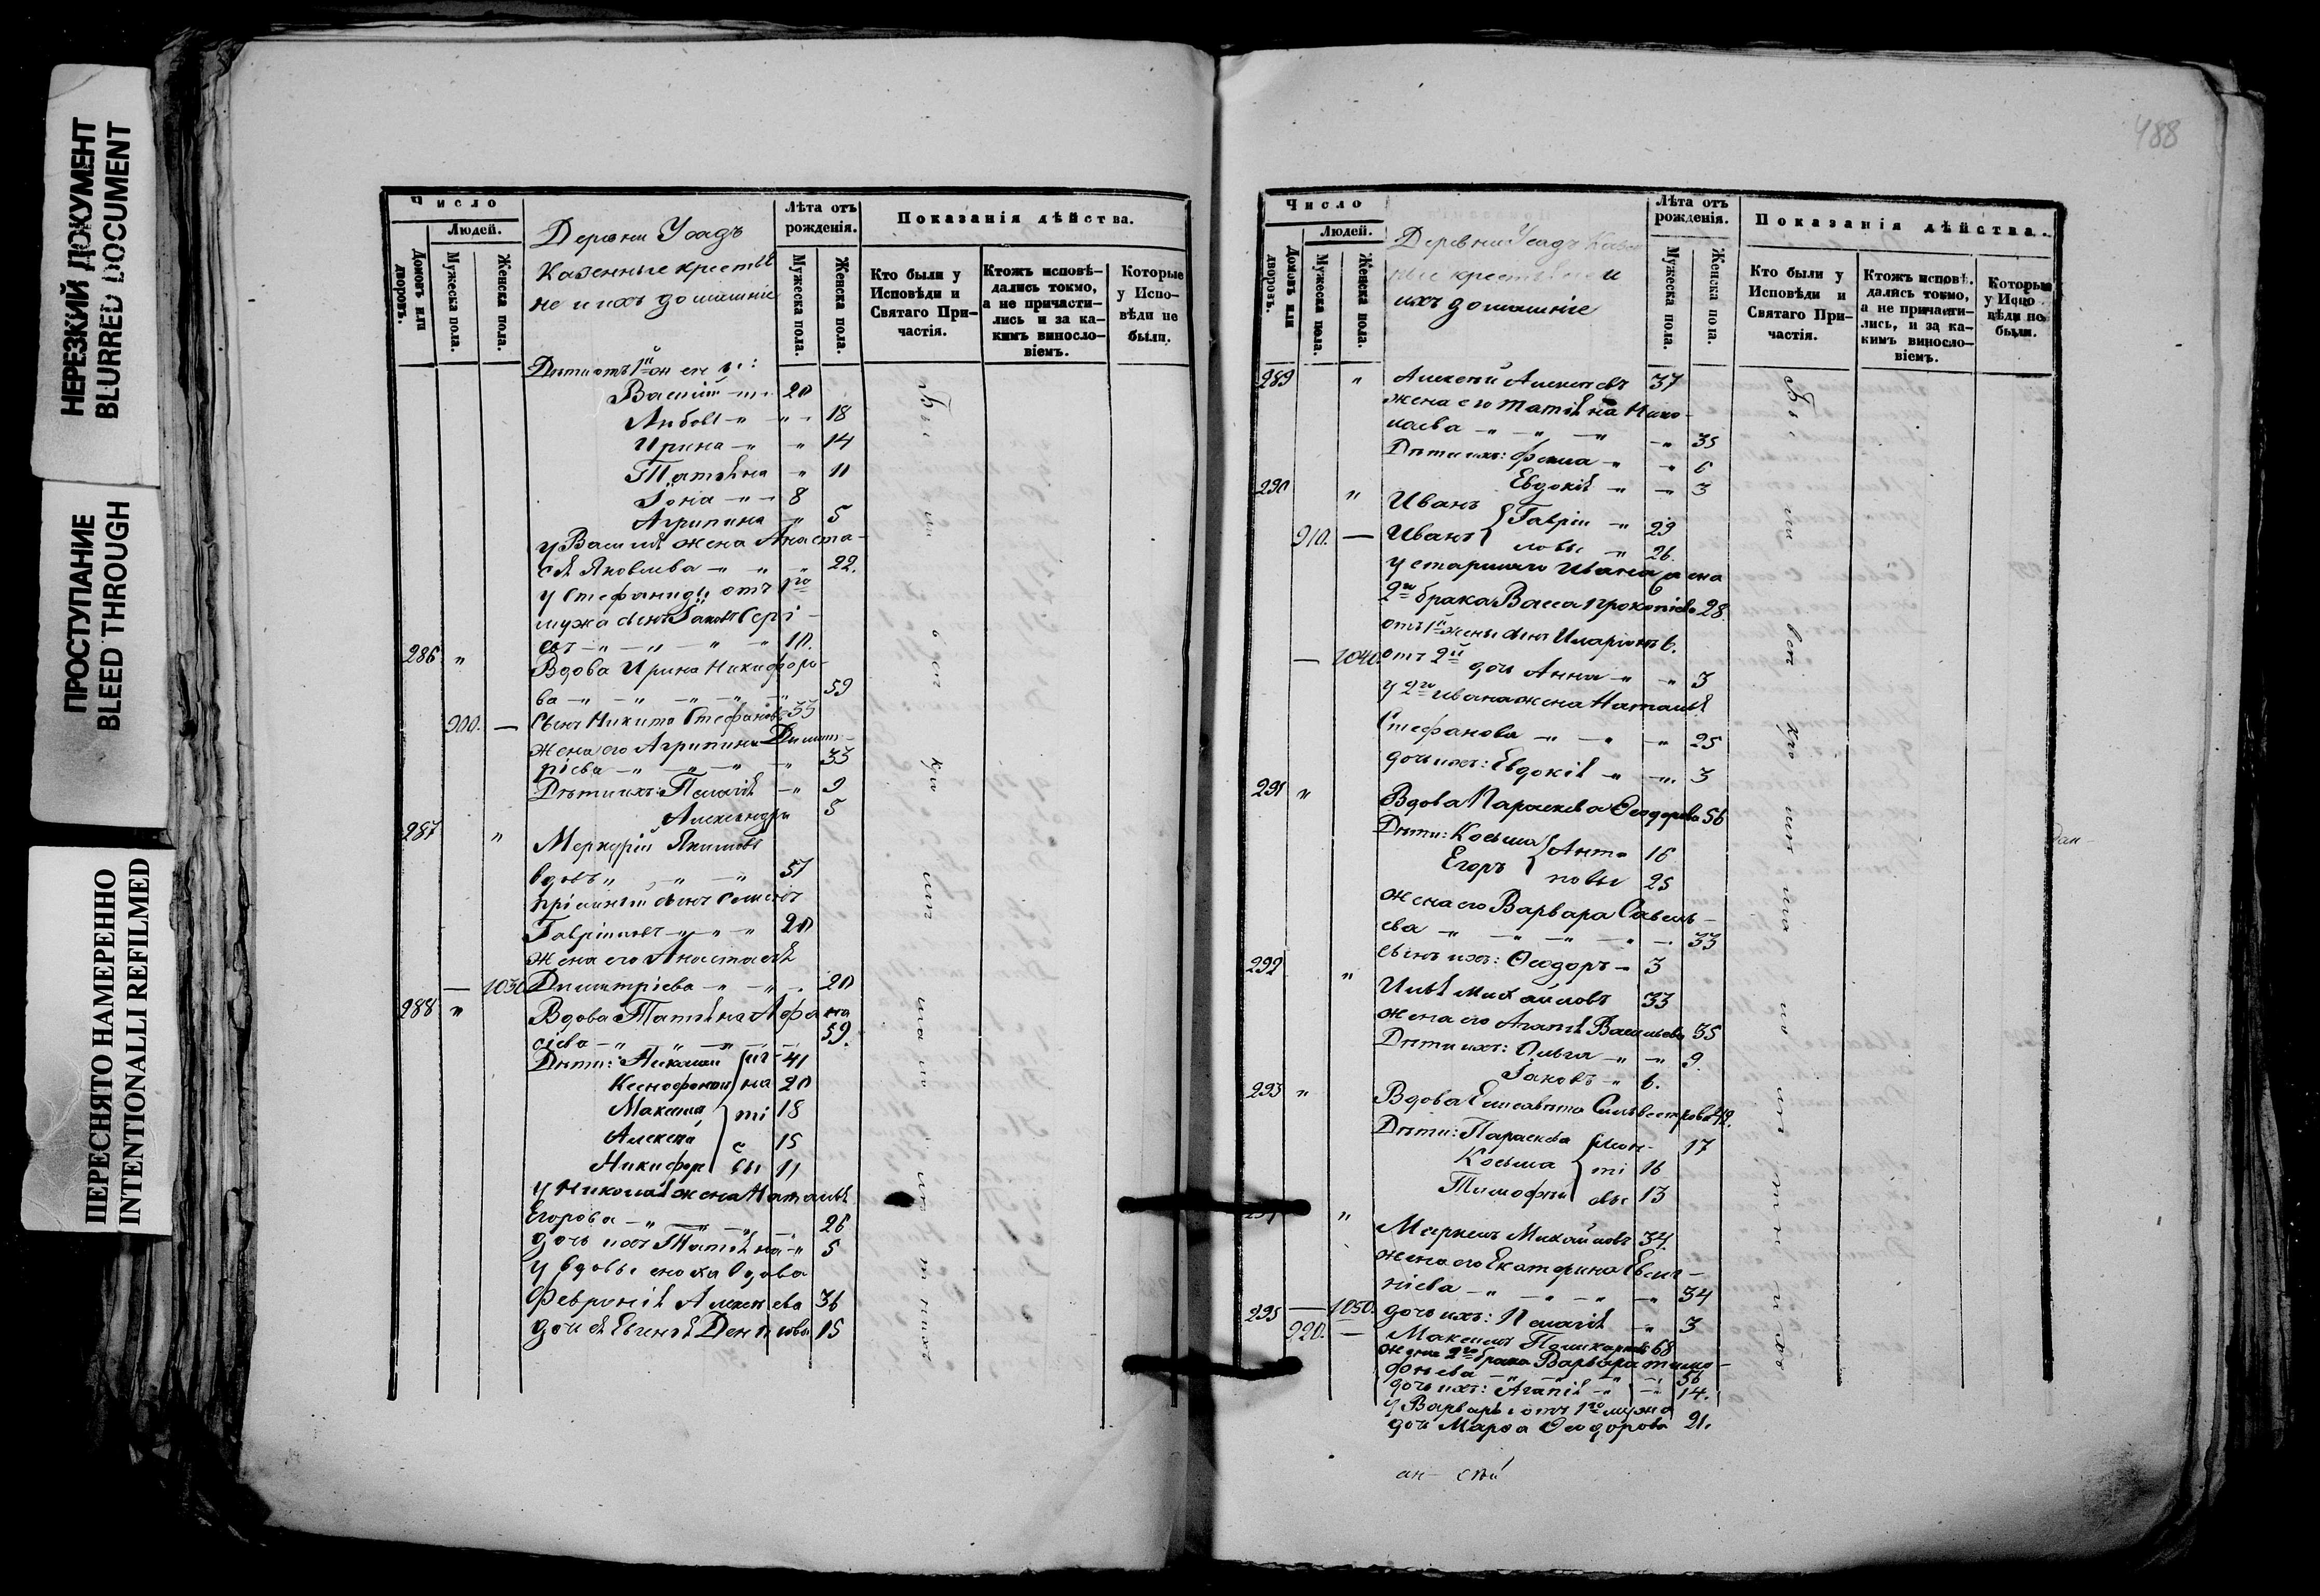 НЕРЕЗКИЙ ДОКУМЕНТ
BLURRED DOCUMENT
ПРОСТУПАНИЕ
BLEED THROUGH
ПЕРЕСНЯТО НАМЕРЕННО
INTENTIONALLI REFILMED
Число
Людей.
Домовъ или дворовъ.
Мужеска пола.
Женска пола.
Деревни Усадъ
Казенные крестья
не и ихъ домашніе
Лѣта отъ рожденія.
Мужеска пола.
Женска пола.
Показанія дѣйства.
Кто были у Исповѣди и Святаго Причастія.
Ктожъ исповѣдались токмо, а не причастились и за какимъ винословіемъ.
Которые у Исповѣди не были.
Дѣти отъ 1й
Василій 20
Любовь 18
Ирина 14
Татіяна 11
Іона 8
Агрипина 5
у Василія жена Анаста-
сія Яковлева 22.
у Стефаниды отъ 1го
мужа сынъ Іаковъ Сергі-
евъ 10.
286 Вдова Ирина Никифоро-
ва 59
900. — Сынъ Никита Стефановъ 33
жена его Агрипина Димит-
ріева 33
Дѣти ихъ: Пелагія 9
Александра 5
287 Меркурій Якимовъ
вдовъ 51
пріемный сынъ Семенъ
Гавріиловъ 20
жена его Анастасія
— 1030 Димитріева 20
288 Вдова Татіяна Афана
сіева 59.
Дѣти: Николай 41
Ксенофонтъ 20
Максимъ 18
Алексѣй 15
Никифоръ 11
у Николая жена Наталія
Егорова 26
дочь ихъ Татіяна 5
у вдовы сноха вдова
Февронія Алексѣева 36
дочь ея Евгенія 15
488
Число
Людей.
Домовъ или дворовъ.
Мужеска пола.
Женска пола.
Деревни Усадъ Казен
ные крестьяне и
ихъ домашніе
Лѣта отъ рожденія.
Мужеска пола.
Женска пола.
Показанія дѣйства.
Кто были у Исповѣди и Святаго Причастія.
Ктожъ исповѣдались токмо, а не причастились, и за какимъ винословіемъ.
Которые у Исповѣди не были.
289 Алексѣй Алексѣевъ 37
жена его Татіяна Нико-
лаева 35
Дѣти ихъ: Фекла 6
Евдокія 3
290 Иванъ Гаврі 29
910. — Иванъ ловы 26.
у старшаго Ивана жена
2го брака Васса Прокопіева 28.
отъ 1й жены сынъ Иларіонъ 6.
— 1040. отъ 2й дочь Анна 3
у 2го Ивана жена Наталія
Стефанова 25
дочь ихъ: Евдокія 3
291 Вдова Параскева Ѳеодорова 56
Дѣти: Косьма Анто 16
Егоръ новы 25
жена его Варвара Савель-
ева 33
сынъ ихъ: Ѳеодоръ 3
292 Илья Михайловъ 33
жена его Агапія Васильева 35
Дѣти ихъ: Ольга 9
Іаковъ 6.
293 Вдова Елисавѣта Сильвестрова 42.
Дѣти: Параскева Меон- 17
Косьма ті 16
Тимофѣй евы 13
Маркелъ Михайловъ 34.
жена его Екатерина Евге-
ніева 34
— 1050. дочь ихъ: Пелагія 3
295 920. — Максимъ Поликарповъ 68
жена 2го брака Варвара Тимо-
фѣева 56
дочь ихъ: Агапія 14.
у Варвары отъ 1го мужа
дочь Марѳа Ѳеодорова 21.